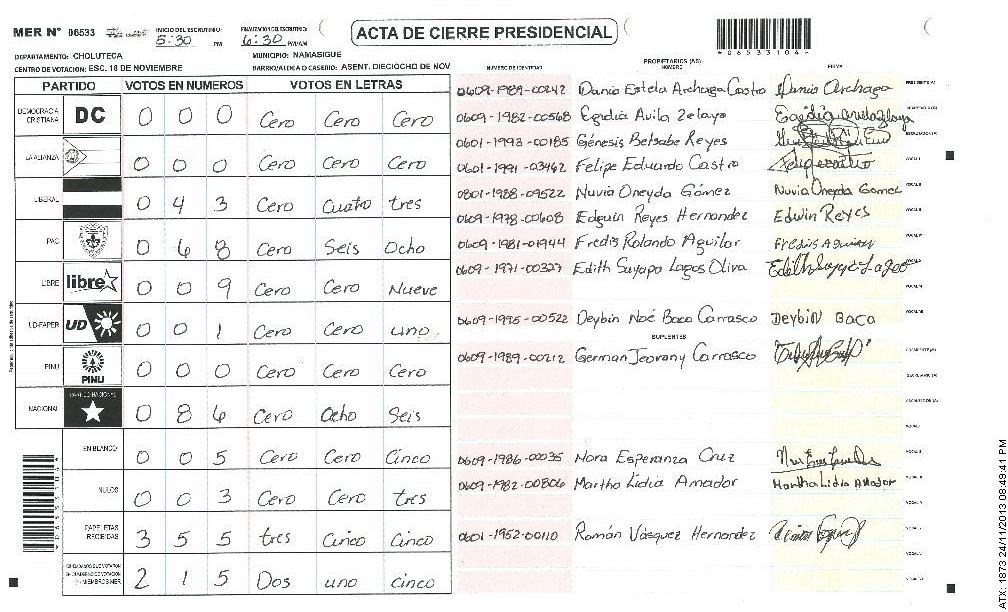 MER Nº 06533 INICIO DEL ESCRUTINIO: 5:30 PM FINALIZACION DEL ESCRUTINIO: 6:30 PM/AM
ACTA DE CIERRE PRESIDENCIAL
*06533104*
DEPARTAMENTO: CHOLUTECA MUNICIPIO: NAMASIGUE
CENTRO DE VOTACION: ESC. 18 DE NOVIEMBRE BARRIO/ALDEA O CASERIO: ASENT. DIECIOCHO DE NOV
PARTIDO VOTOS EN NUMEROS VOTOS EN LETRAS
DEMOCRACIA CRISTIANA DC 0 0 0 Cero Cero Cero
LA ALIANZA 0 0 0 Cero Cero Cero
LIBERAL 0 4 3 Cero Cuatro tres
PAC 0 6 8 Cero Seis Ocho
LIBRE libre 0 0 9 Cero Cero Nueve
UD-FAPER UD 0 0 1 Cero Cero uno
PINU PINU 0 0 0 Cero Cero Cero
NACIONAL PARTIDO NACIONAL 0 8 6 Cero Ocho Seis
EN BLANCO 0 0 5 Cero Cero Cinco
NULOS 0 0 3 Cero Cero tres
PAPELETAS RECIBIDAS 3 5 5 tres Cinco Cinco
2 1 5 Dos uno cinco
NUMERO DE IDENTIDAD PROPIETARIOS (AS) NOMBRE FIRMA
0609-1989-00242 Dania Estela Archaga Castro Dania Archaga
0609-1982-00568 Egidia Avila Zelaya
0601-1993-00185 Génesis Betsabe Reyes
0601-1991-03462 Felipe Eduardo Castro
0801-1988-09522 Nuvia Oneyda Gómez Nuvia Oneyda Gomez
0609-1978-00608 Edguin Reyes Hernandez Edwin Reyes
0609-1981-01944 Fredis Rolando Aguilar Fredis Aguilar
0609-1971-00327 Edith Suyapa Lagos Oliva
0609-1995-00522 Deybin Noé Baca Carrasco Deybin Baca
SUPLENTES
0609-1989-00212 German Jeovany Carrasco
0609-1986-00035 Nora Esperanza Cruz
0609-1982-00806 Martha Lidia Amador Martha Lidia Amador
0601-1952-00110 Román Vásquez Hernandez
ATX: 1873 24/11/2013 08:49:41 PM